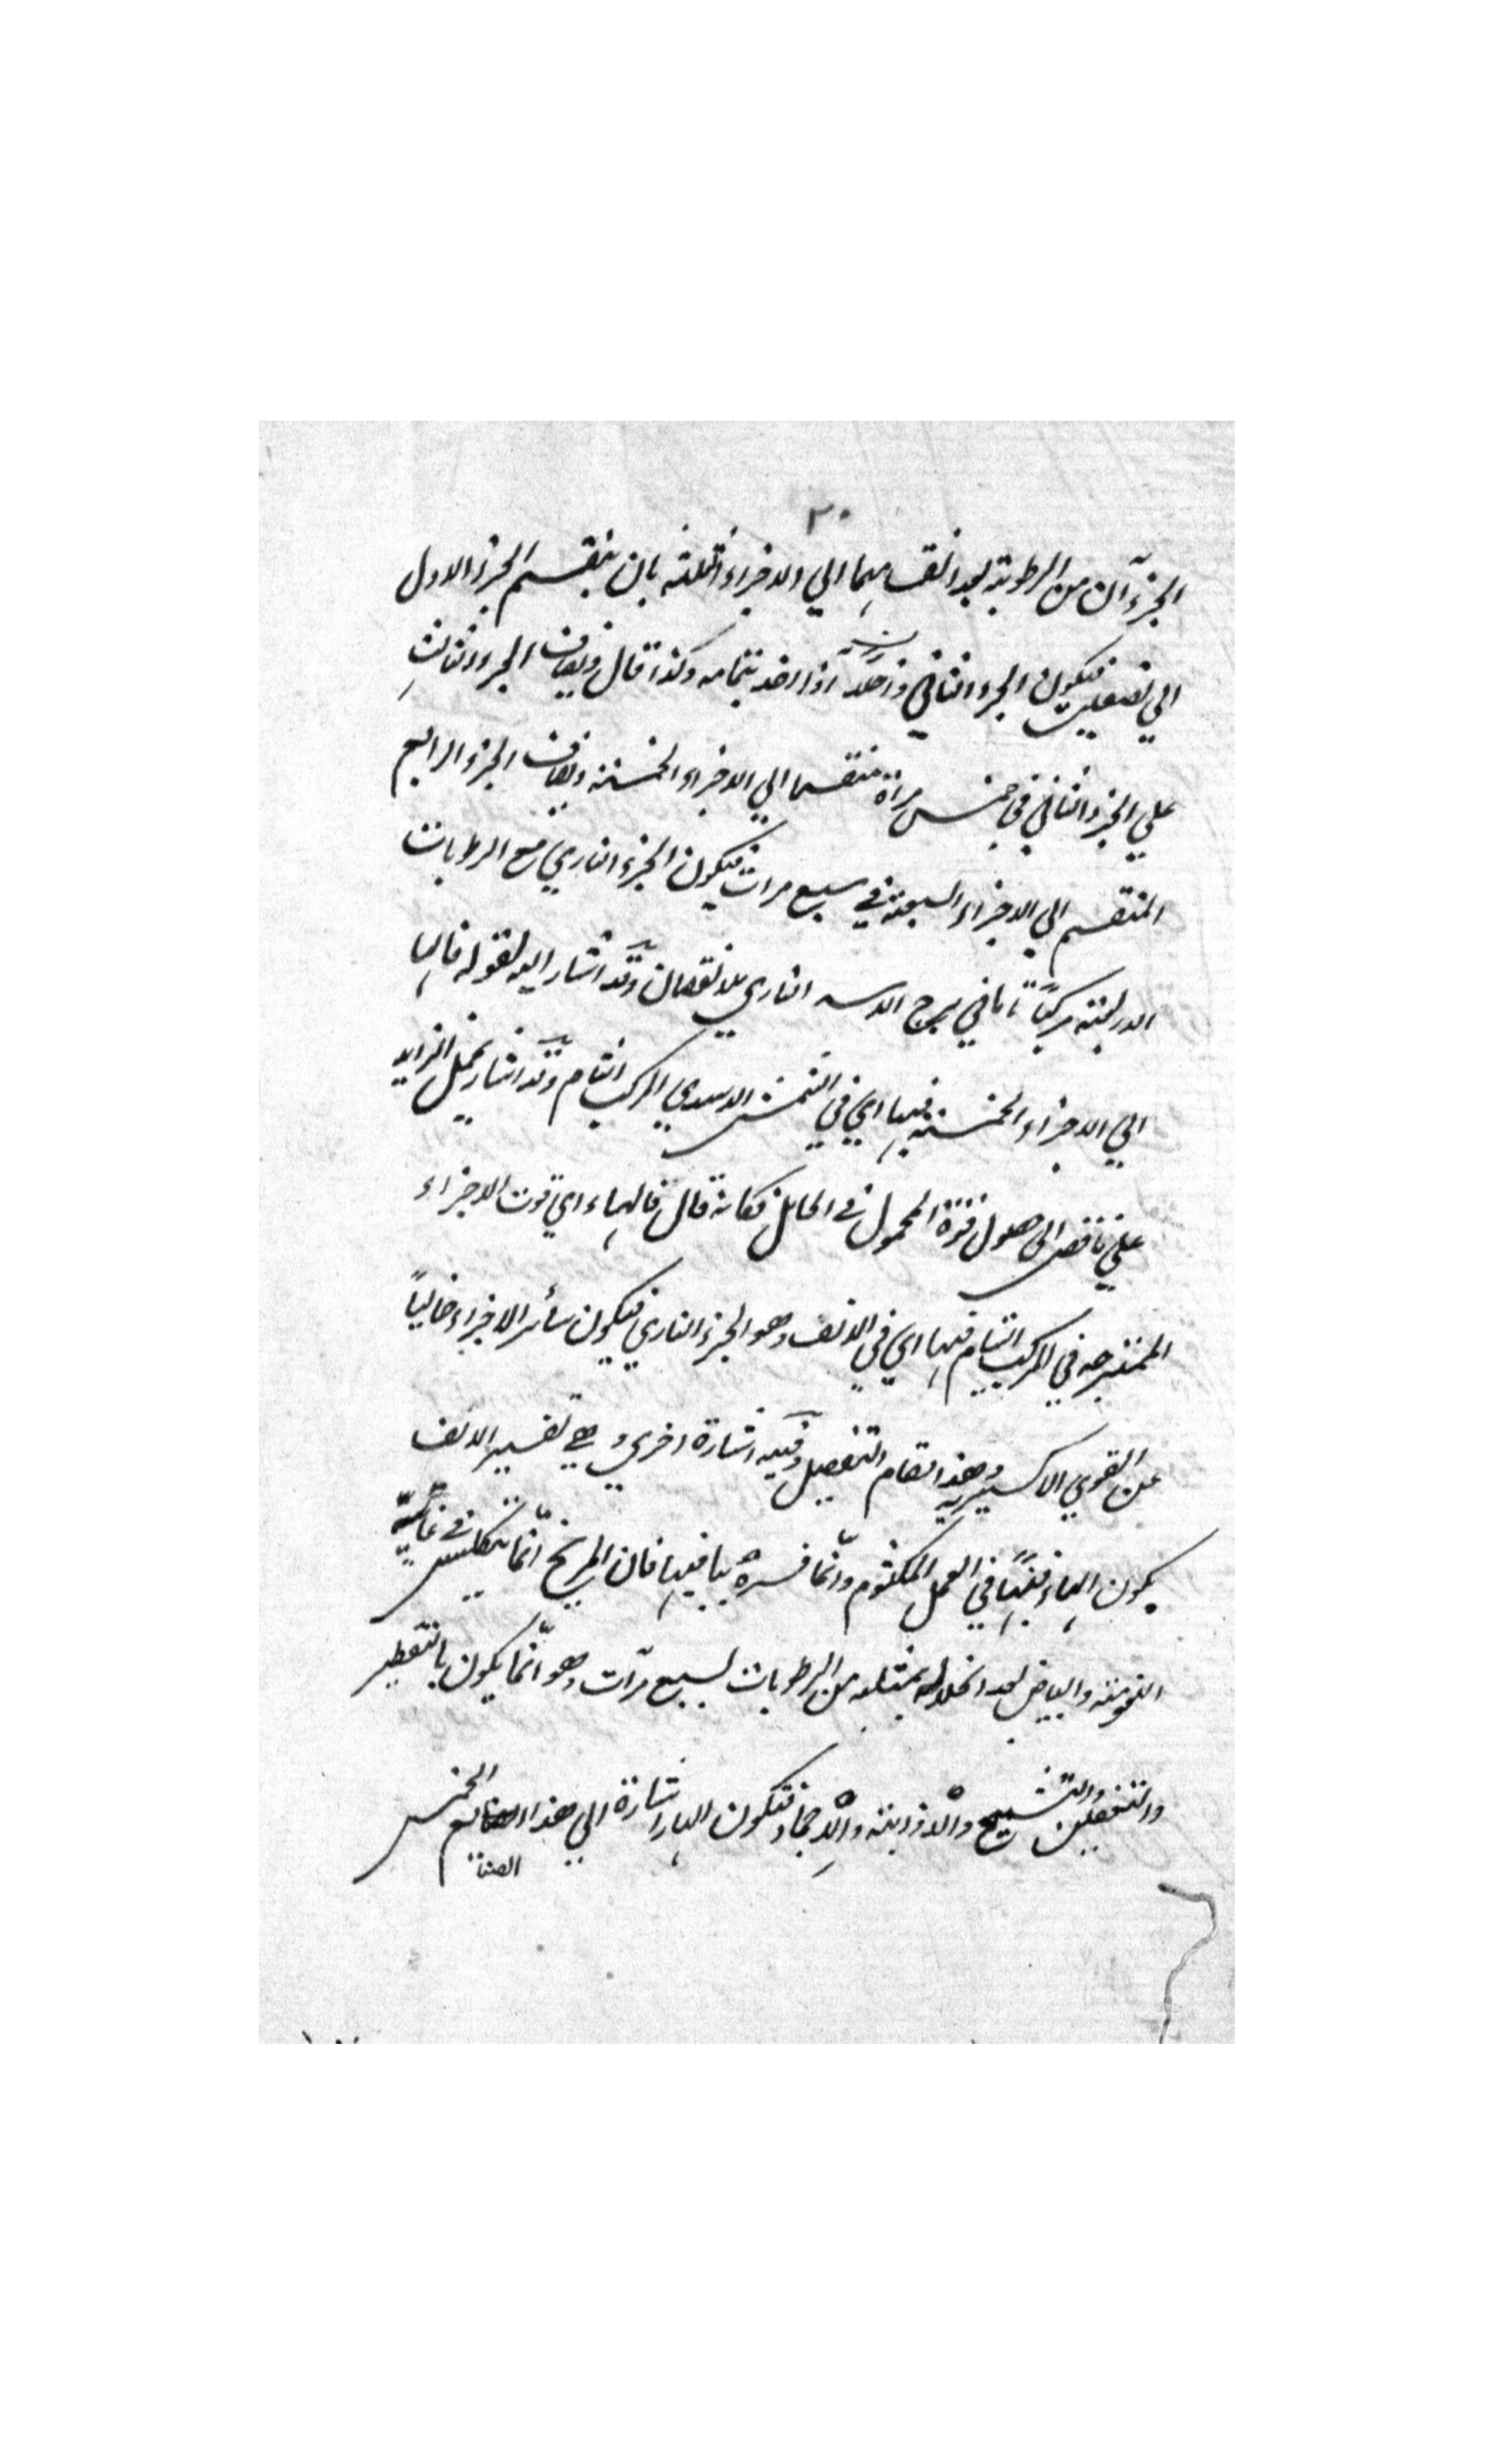 ٣٠
الجزءآن من الرطوبة بعد انقسامهما الي الاجزاء الثلثة بان ينقسم الجزء الاول
الي نصفين فيكون الجزء الثاني اذا اخذ بتمامه وكذا قال ويضاف الجزء الثالث
علي الجزء الثاني في خمس مراة منقسما الي الاجزاء الخمسة ويضاف الجزء الرابع
المنقسم الي الاجزاء السبعة في سبع مرات فيكون الجزء الناري مع الرطوبات
مركبًا تاما في برج الاسد الناري بلا نقصان وقد اشار اليه بقوله فالها
الي الاجزاء الخمسة فيها اي في الشمس الاسدي المركب التام وقد اشار بحمل الزايد
علي ناقص الى حصول قوة المحمول في الحامل فكانه قال فالهاء اي قوت الاجزاء
الممتزجه في المركب التام فيها اي في الالف وهو الجزء الناري فيكون سائر الاجزاء خاليًا
عن القوي الاكسيريه وهذا تمام التفصيل وفيه اشارة اخري وهي تفسير الالف
بكون الهاء فيها في العمل المكتوم وانّما فسره بها فيها فان المريخ انّما يتكلس في غايّة
النعومة والبياض بعد انحلاله بمثله من الرطوبات لسبع مرّات وهو انّما يكون بالتقطير
والتفصيل والتشبيح والاذابة والاجماد فتكون الها اشارة الي هذا الصنايع الخمس
الصنا